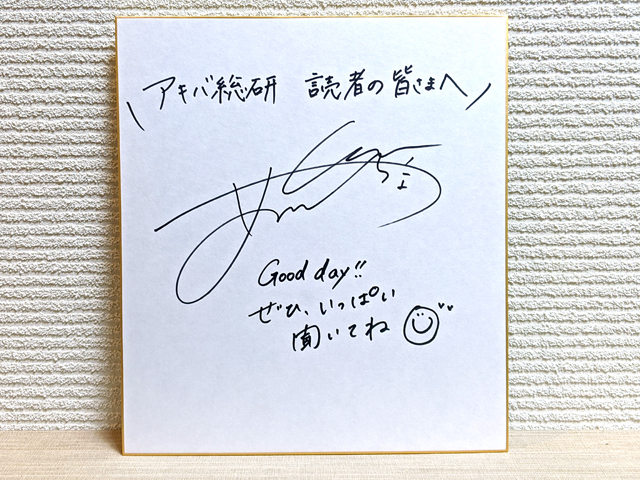 アキバ総研 読者の皆さまへ
Good day!!
ぜひ、いっぱい
聞いてね